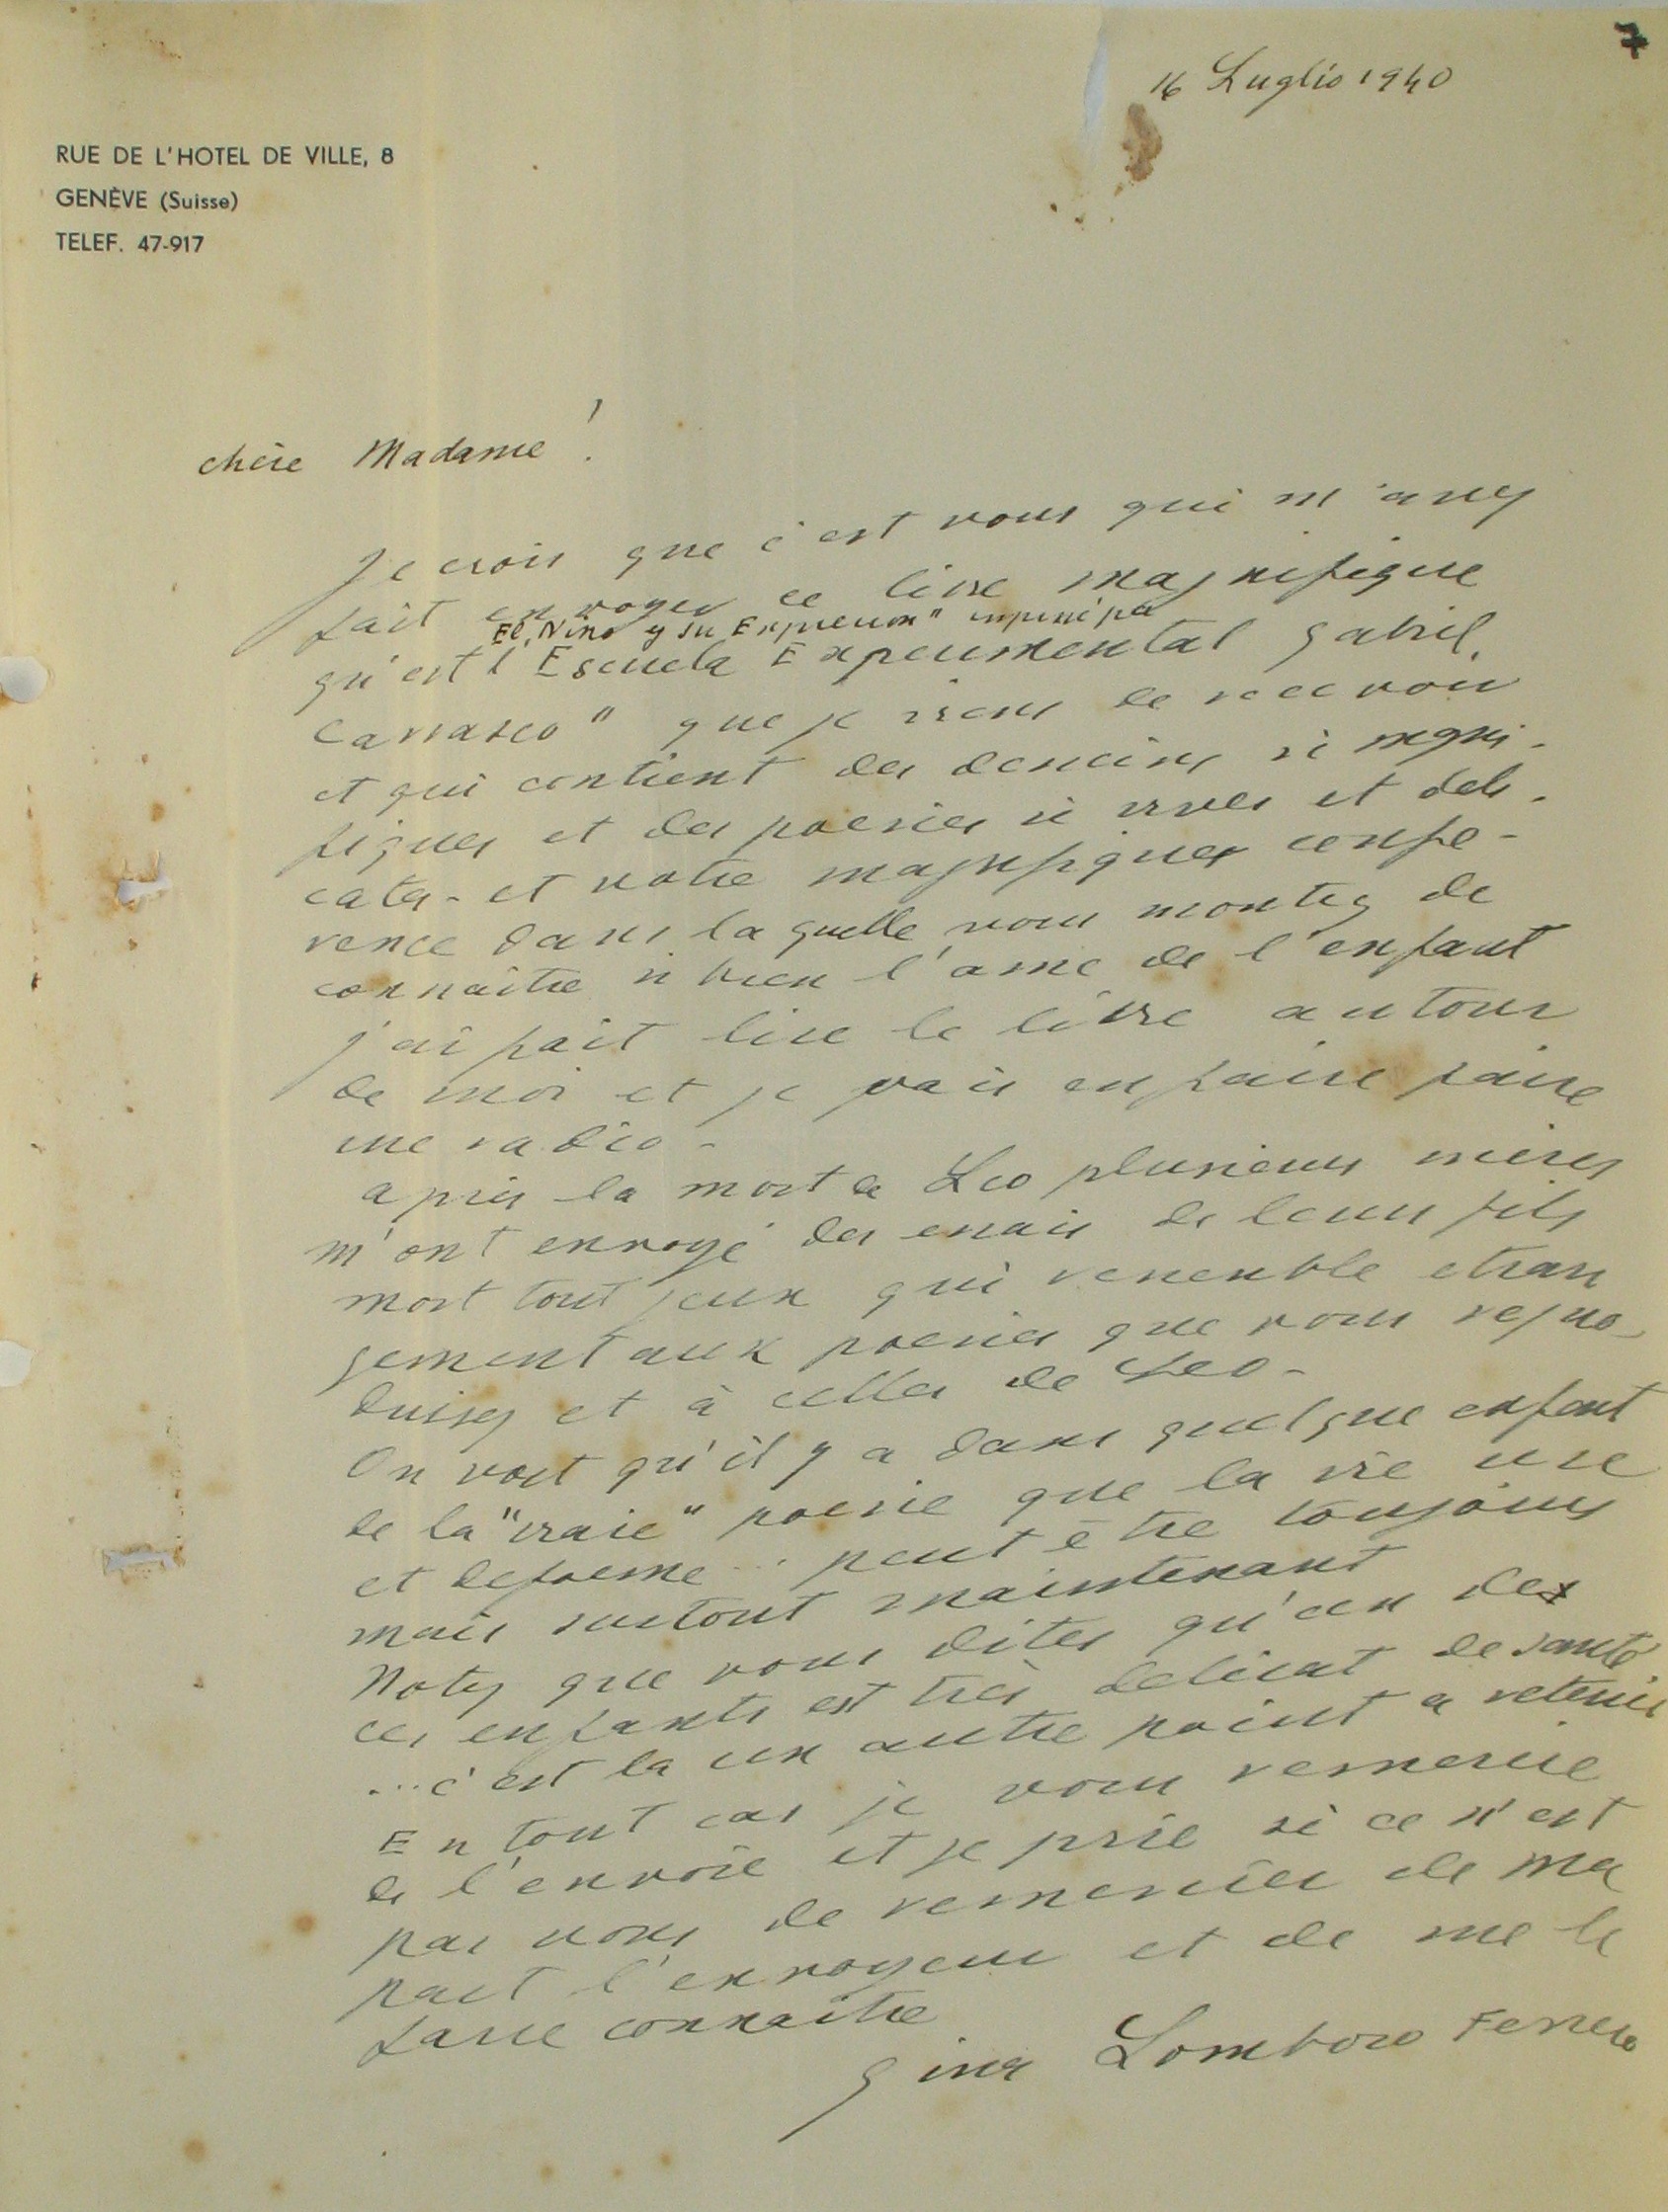 7
16 Luglio 1940
RUE DE L'HOTEL DE VILLE, 8
GENÈVE (Suisse)
TELEF. 47-917
chère Madame !
Je crois que c'est vous qui m'avez
fait envoyer ce livre magnifique
"El Nino y su Expresion"
qu'est l'Escuela Experimental Gabriel
Carrasco" que je viens de recevoir
et qui contient des dessins si magni-
fiques et des poesies si vives et deli-
cates - et votre magnifiques confe-
rence dans la quelle vous montez de
connaître si bien l'ame de l'enfant
j'ai fait lire le livre autour
de moi et je vais en faire faire
une radio -
apres la mort de Leo plusieurs mères
m'ont envoyé des essais de leurs fils
mort tout jeune qui resemble etran
gement aux poesies que vous repro-
duisez et à celles de Leo -
On voit qu'il y a dans quelque enfant
de la "vraie" poesie que la vie use
et deforme ... peut être toujours
mais surtout maintenant
Notez que vous dites qu'un des
ces enfants est très delicat de santé
... c'est la un autre point a retenir
En tout cas je vous remercie
de l'envoie et je prie si ce n'est
pas vous de remercier de ma
part l'envoyeur et de me le
faire connaitre
Gina Lombroso Ferrero